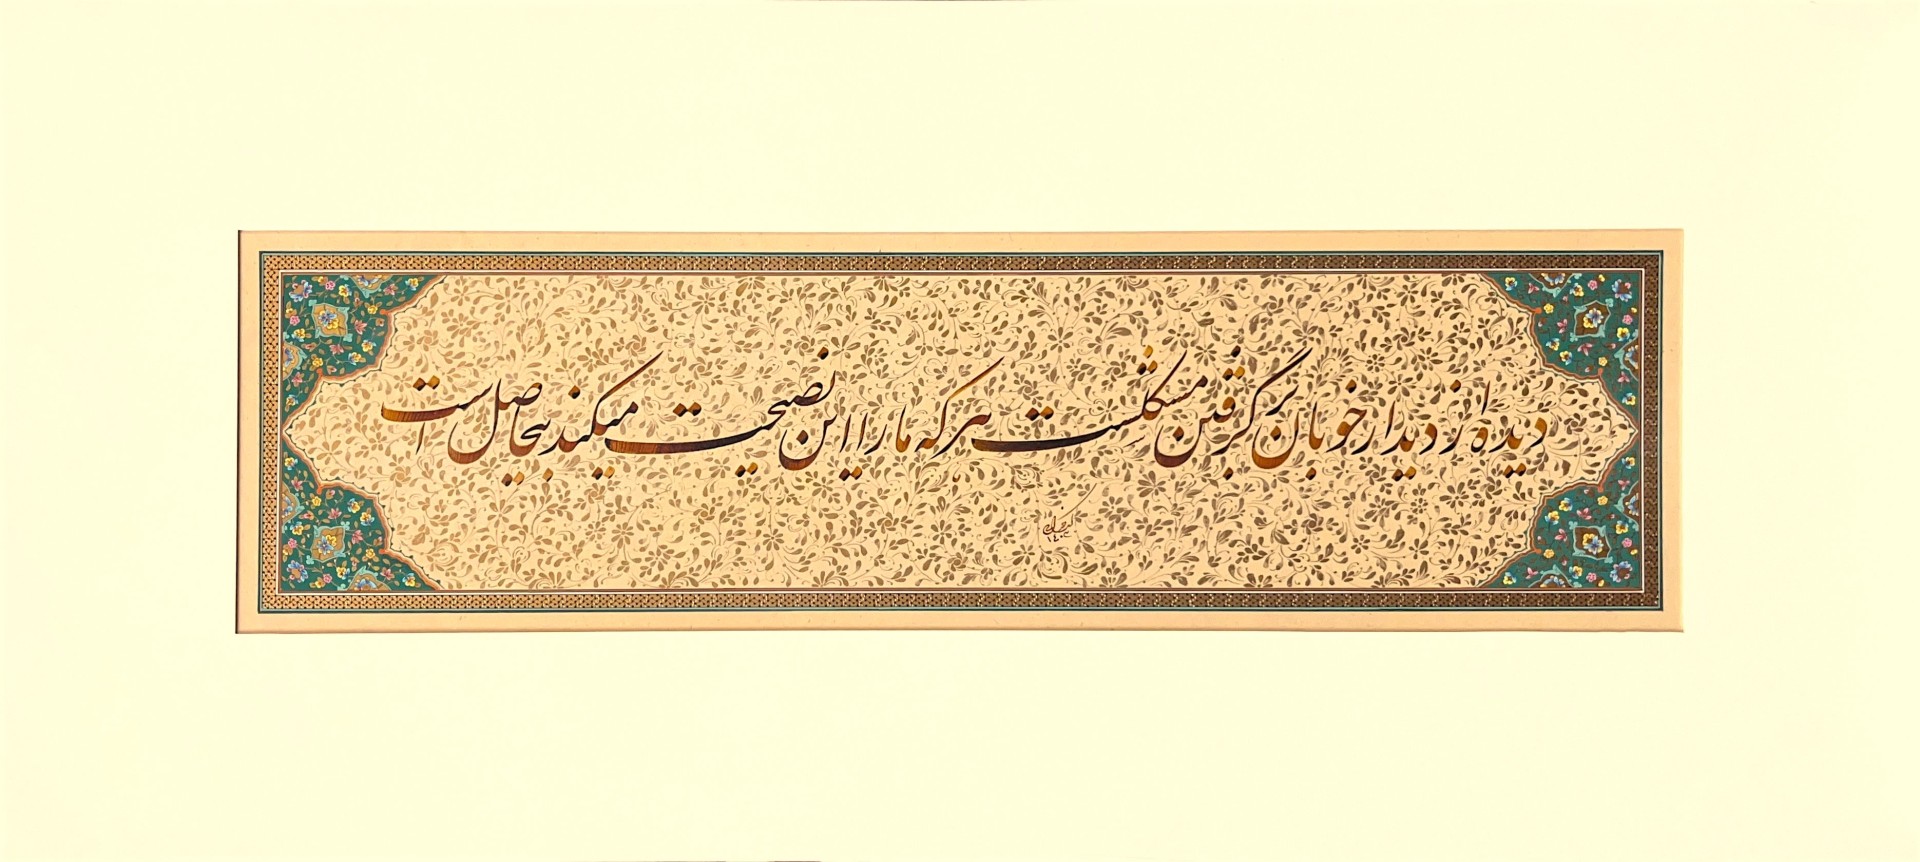 دیده از دیدار خوبان برگرفتن مشکلست هر که ما را این نصیحت میکند بیحاصل است